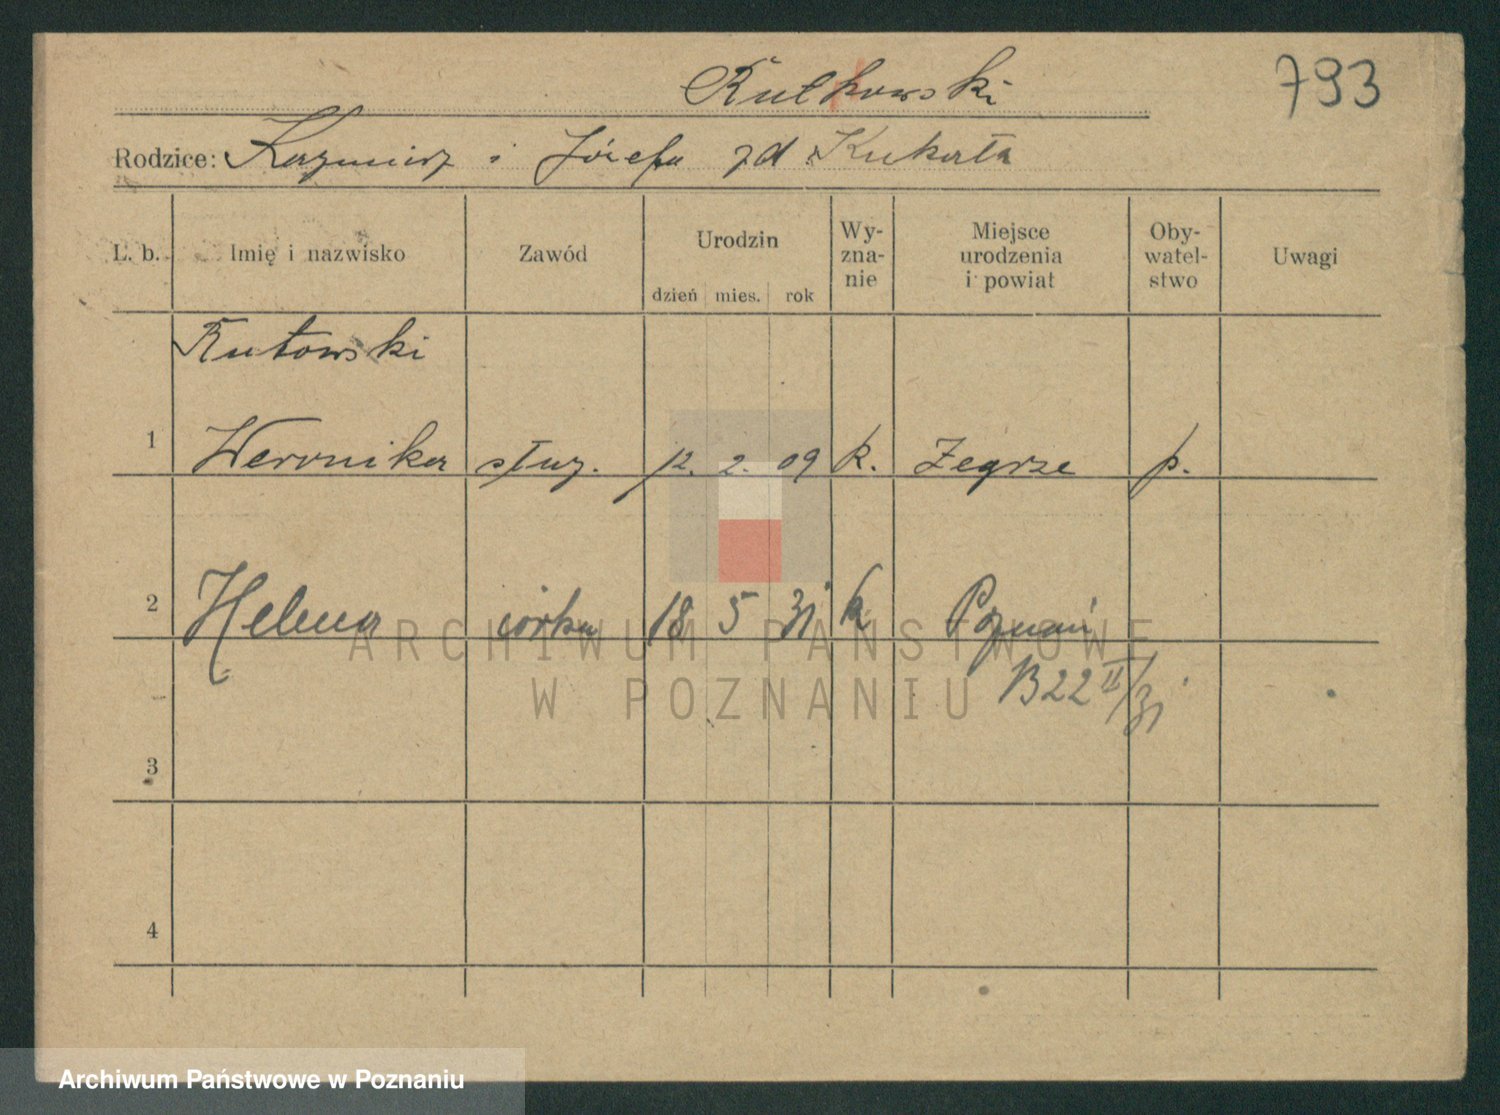 Rutkowski
793
Rodzice: Kazimierz i Józefa zd Kukorła
L. b. Imię i nazwisko Zawód Urodzin dzień mies. rok Wy-zna-nie Miejsce urodzenia i powiat Oby-watel-stwo Uwagi
Rutowski
1 Weronika służ. 12. 2. 09 k. Zegrze p.
2 Helena córka 18 5 31 k Poznań
B22 II/31
3
4
ARCHIWUM PAŃSTWOWE
W POZNANIU
Archiwum Państwowe w Poznaniu